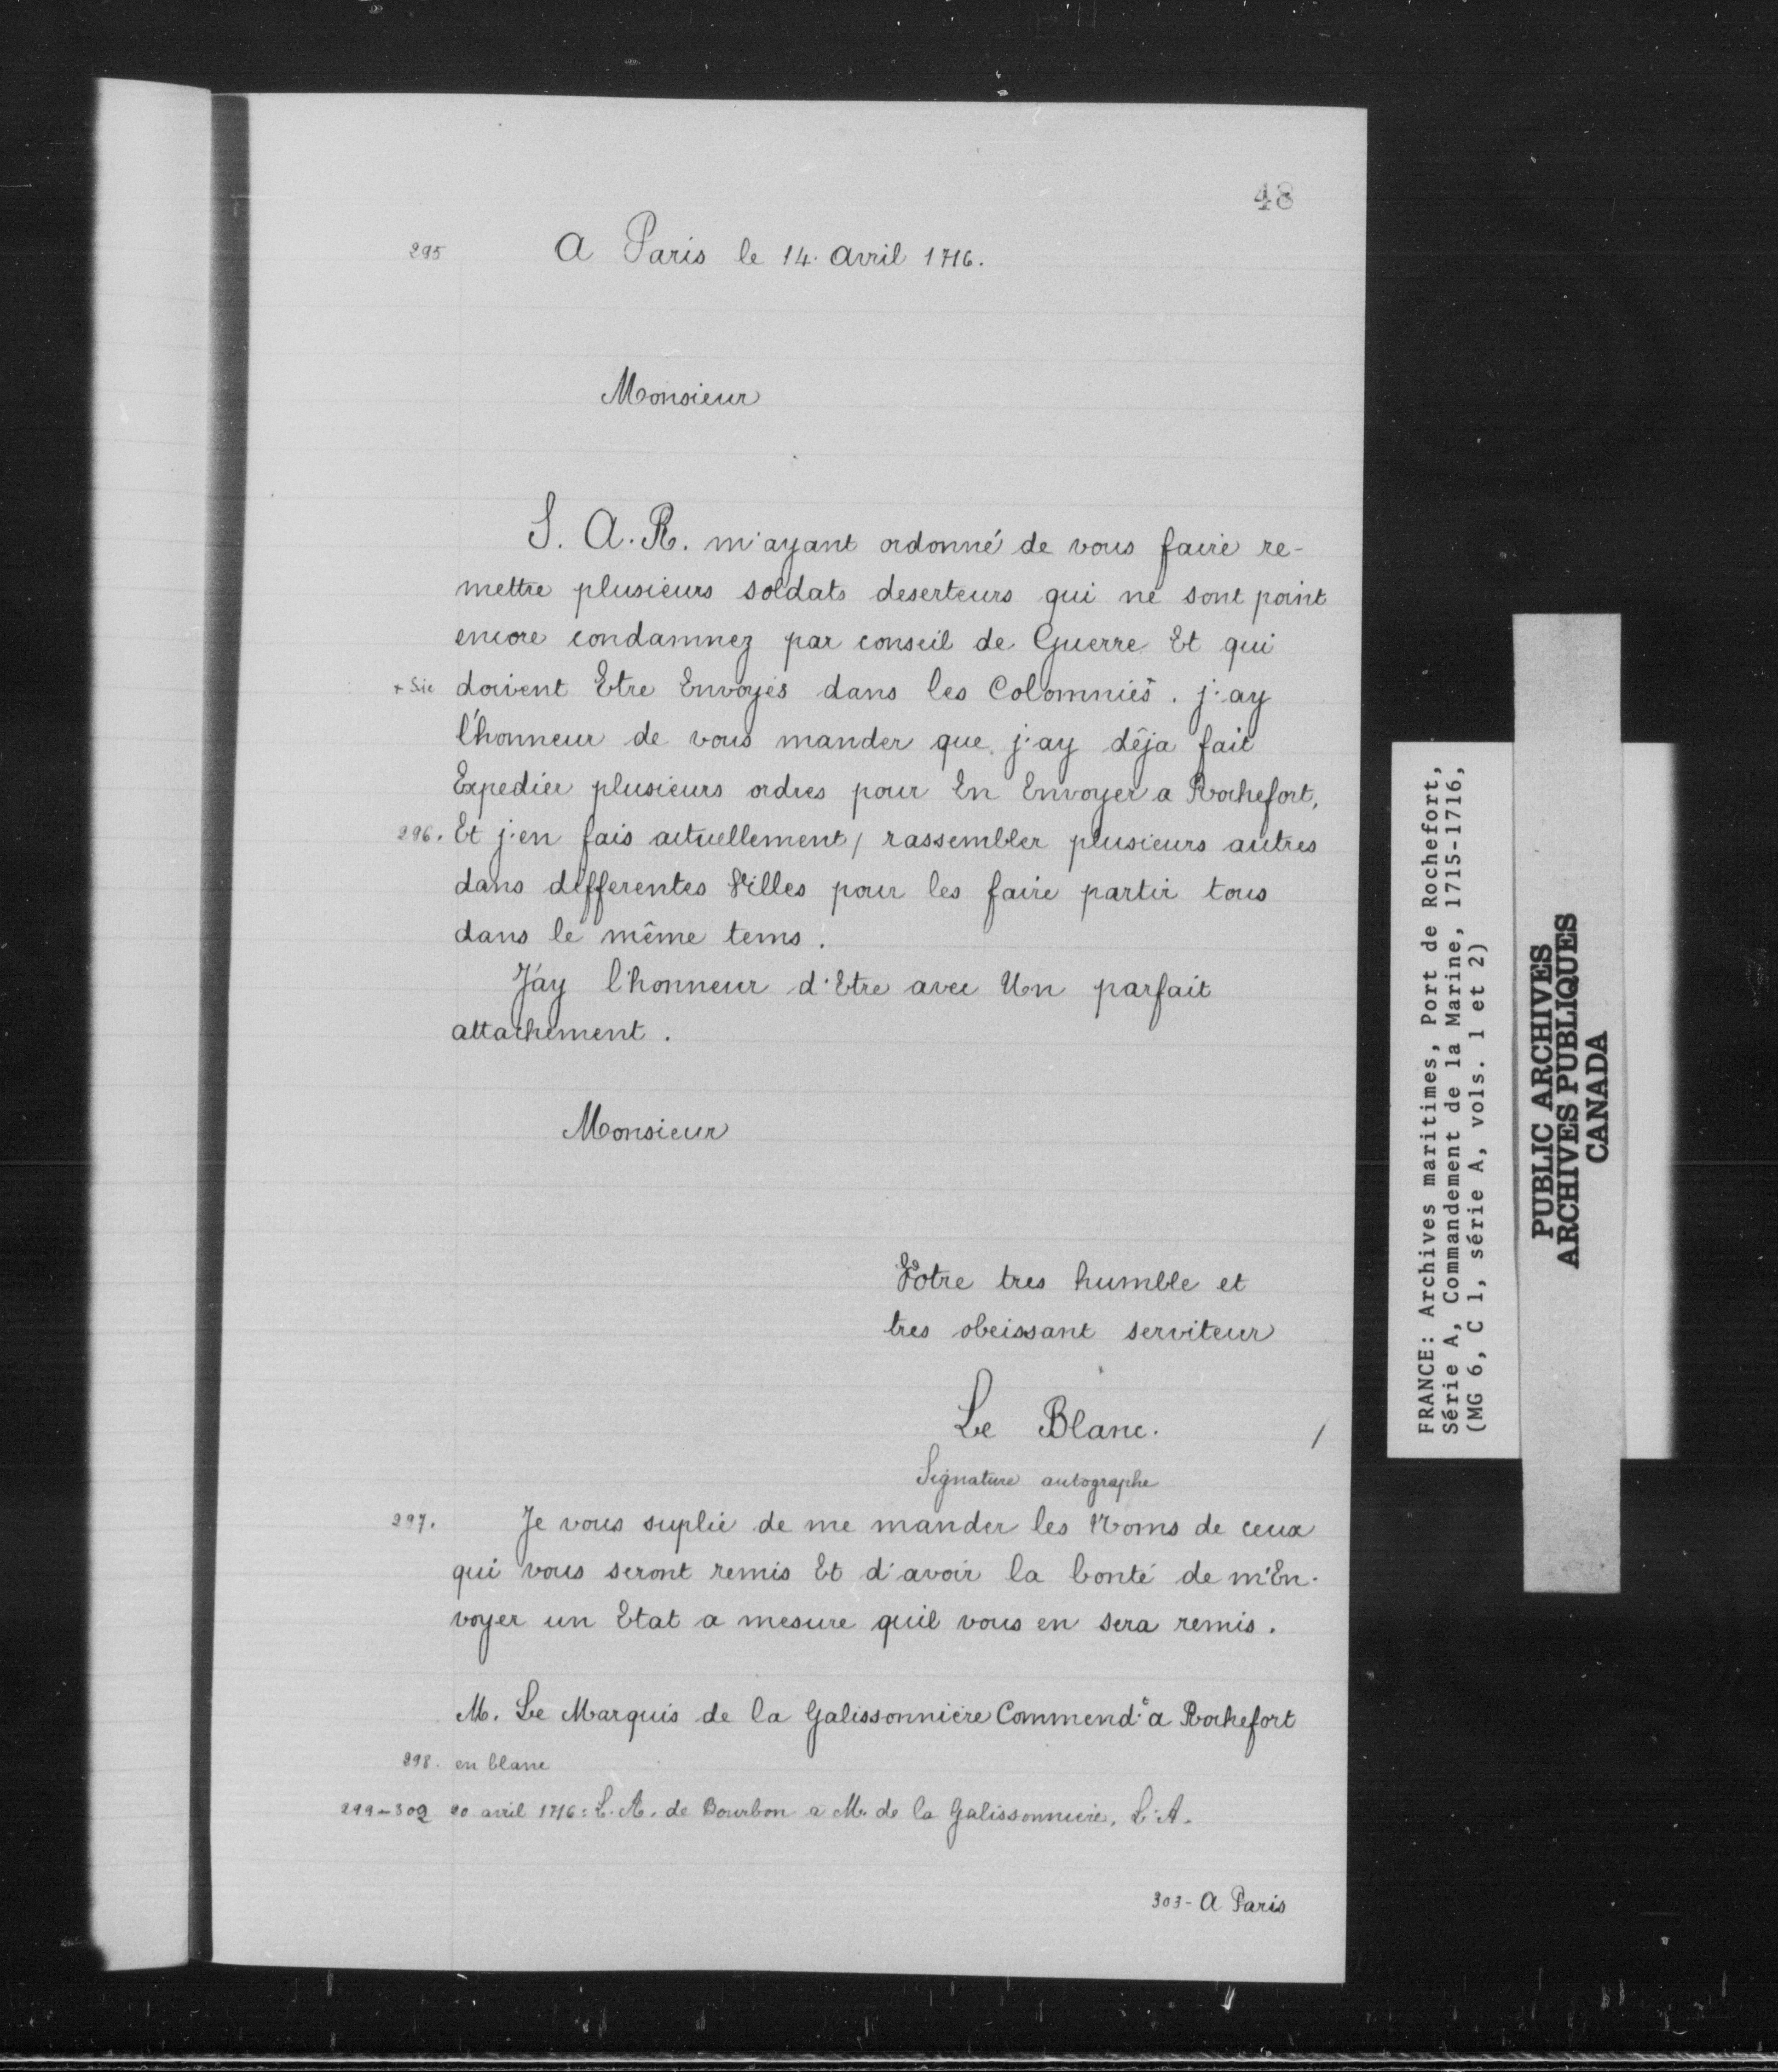 48
295 A Paris le 14. Avril 1716.
Monsieur
S. A. R. m'ayant ordonné de vous faire re-
mettre plusieurs soldats deserteurs qui ne sont point
encore condamnez par conseil de Guerre Et qui
+ Sic doivent Etre Envoyés dans les Colomnies+. j'ay
l'honneur de vous mander que j'ay dêja fait
Expedier plusieurs ordres pour En Envoyer a Rochefort,
296. Et j'en fais actuellement / rassembler plusieurs autres
dans differentes Villes pour les faire partir tous
dans le même tems.
J'ay l'honneur d'Etre avec Un parfait
attachement.
Monsieur
Votre tres humble et
tres obeissant serviteur
Le Blanc. /
Signature autographe
297. Je vous suplie de me mander les Noms de ceux
qui vous seront remis Et d'avoir la bonté de m'En-
voyer un Etat a mesure quil vous en sera remis.
M. Le Marquis de la Galissonniere Commend.t a Rochefort
298. en blanc
299-302 20 avril 1716: L. A. de Bourbon a Mr. de la Galissonniere, L. A.
303- A Paris
FRANCE: Archives maritimes, Port de Rochefort,
Série A, Commandement de la Marine, 1715-1716,
(MG 6, C 1, série A, vols. 1 et 2)
PUBLIC ARCHIVES
ARCHIVES PUBLIQUES
CANADA